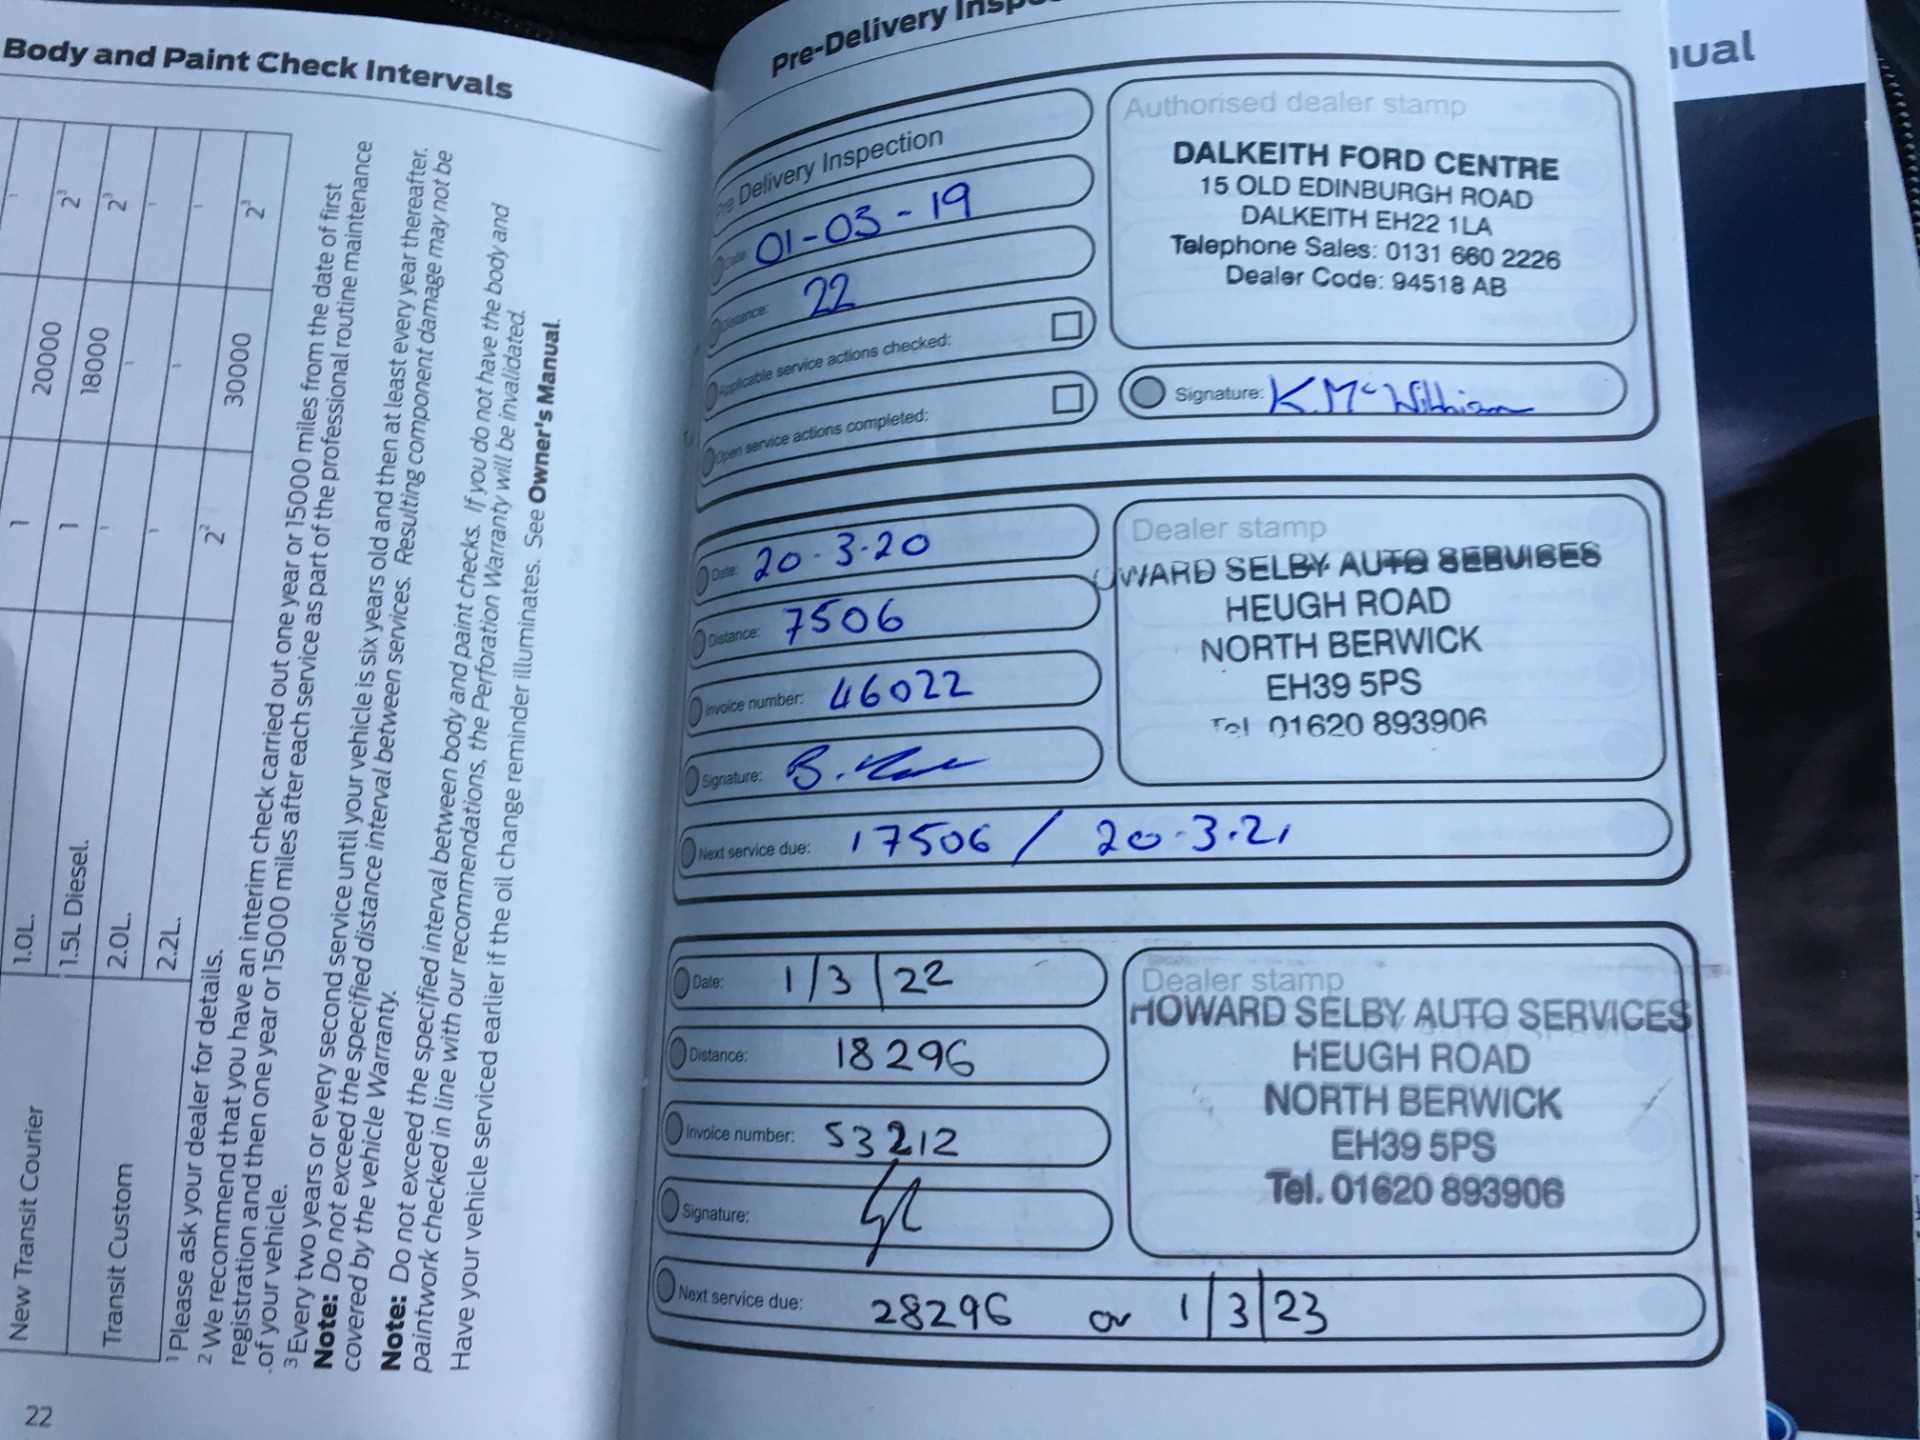 Body and Paint Check Intervals
New Transit Courier 1.0L. 1 20000 2³
1.5L Diesel. 1 18000 2³
Transit Custom 2.0L.
2.2L. 2² 30000 2³
¹ Please ask your dealer for details.
² We recommend that you have an interim check carried out one year or 15000 miles from the date of first
registration and then one year or 15000 miles after each service as part of the professional routine maintenance
of your vehicle.
³ Every two years or every second service until your vehicle is six years old and then at least every year thereafter.
Note: Do not exceed the specified distance interval between services. Resulting component damage may not be
covered by the vehicle Warranty.
Note: Do not exceed the specified interval between body and paint checks. If you do not have the body and
paintwork checked in line with our recommendations, the Perforation Warranty will be invalidated.
Have your vehicle serviced earlier if the oil change reminder illuminates. See Owner's Manual.
22
Pre-Delivery
Pre Delivery Inspection
Date: 01-03-19
Distance: 22
Applicable service actions checked:
Open service actions completed:
Authorised dealer stamp
DALKEITH FORD CENTRE
15 OLD EDINBURGH ROAD
DALKEITH EH22 1LA
Telephone Sales: 0131 660 2226
Dealer Code: 94518 AB
Signature: K McWilliam
Date: 20-3-20
Distance: 7506
Invoice number: 46022
Signature: B.
Next service due: 17506 / 20-3-21
Dealer stamp
OWARD SELBY AUTO SERVICES
HEUGH ROAD
NORTH BERWICK
EH39 5PS
Tel 01620 893906
Date: 1/3/22
Distance: 18296
Invoice number: 53212
Signature:
Next service due: 28296 or 1/3/23
Dealer stamp
HOWARD SELBY AUTO SERVICES
HEUGH ROAD
NORTH BERWICK
EH39 5PS
Tel. 01620 893906